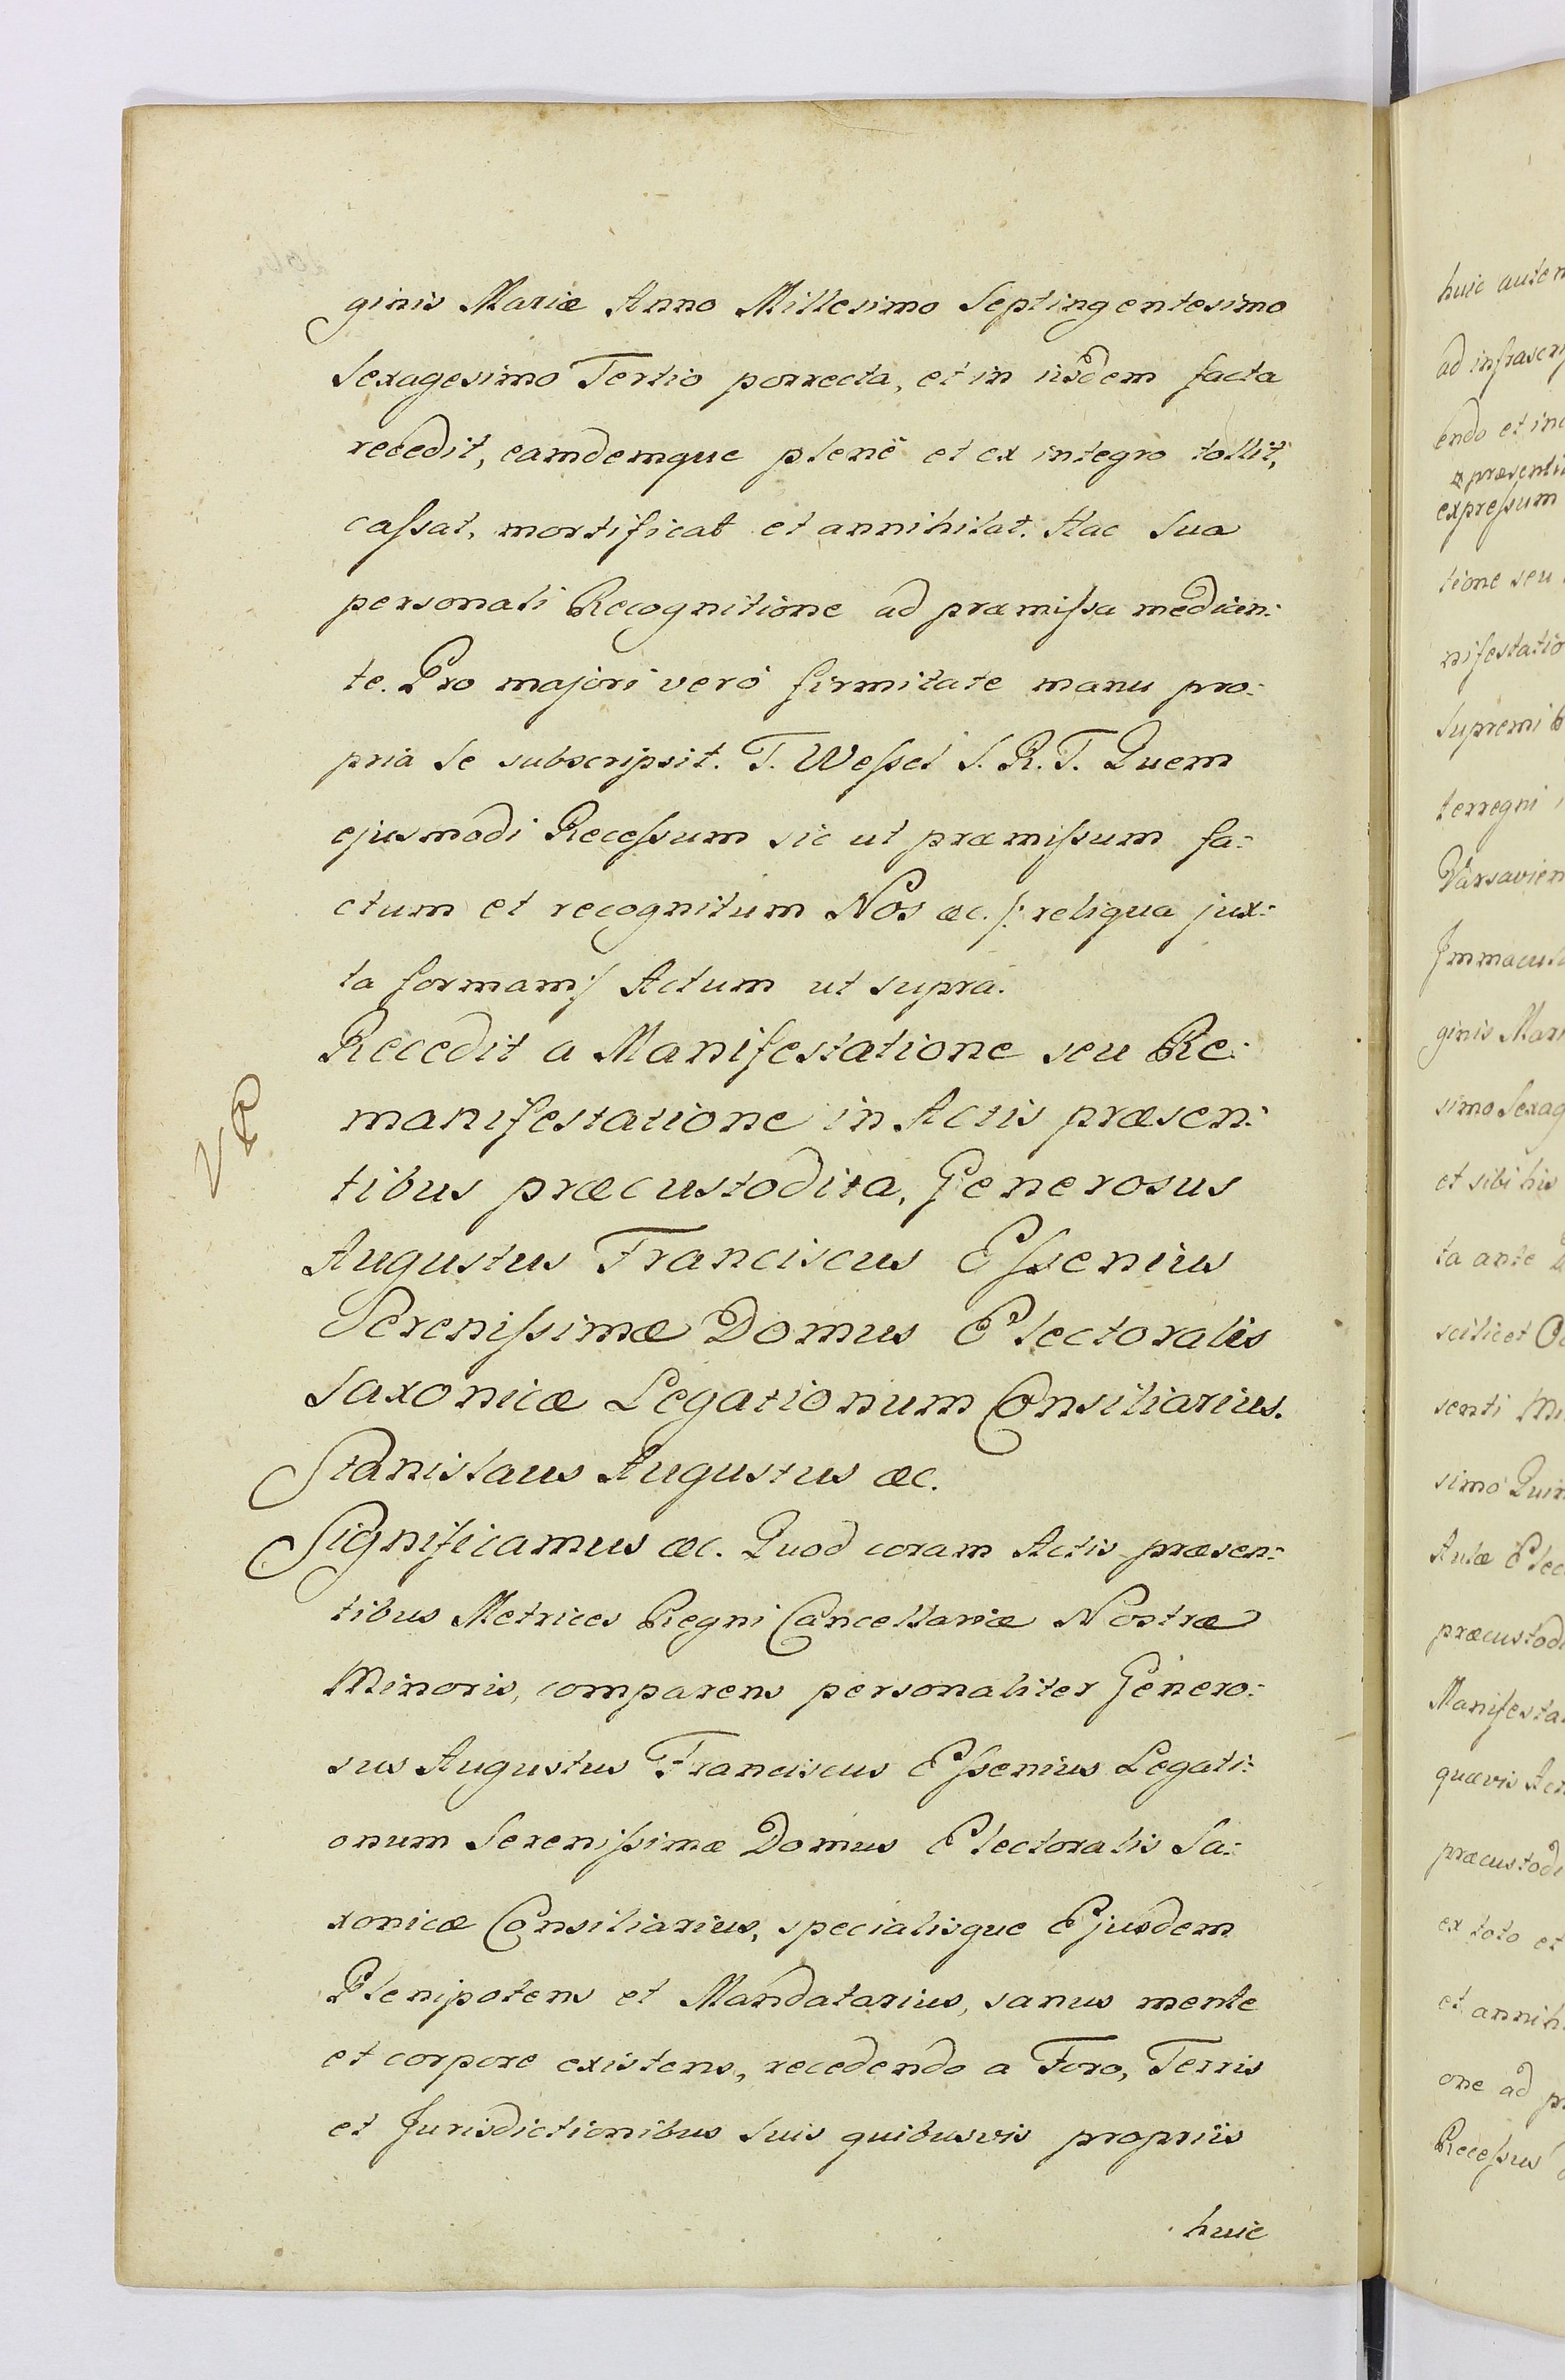 ginis Mariæ Anno Millesimo Septingentesimo
Sexagesimo Tertio porrecta, et in iisdem facta
recedit, eamdemque plenè et ex integro tollit,
caſsat, mortificat et annihilat. Hac Sua
personali Recognitione ad præmiſsa median:
te. Pro majori verò firmitate manu pro:
pria Se subscripsit. T. Weſsel S. R. T. Quem
ejusmodi Receſsum sic ut præmiſsum fa:
ctum et recognitum Nos &c. /: reliqua jux:
ta formam :/ Actum ut supra.
Recedit a Manifestatione seu Re:
manifestatione in Actis præsen:
tibus præcustodita, Generosus
Augustus Franciscus Eſsenius
Sereniſsimæ Domus Electoralis
Saxonicæ Legationum Consiliarius.
Stanislaus Augustus &c.
Significamus &c. Quod coram Actis præsen:
tibus Metrices Regni Cancellariæ Nostræ
Minoris, comparens personaliter Genero:
sus Augustus Franciscus Eſsenius Legati:
onum Sereniſsimæ Domus Electoralis Sa:
xonicæ Consiliarius, specialisque Ejusdem
Plenipotens et Mandatarius, sanus mente
et corpore existens, recedendo a Foro, Terris
et Jurisdictionibus Suis quibusvis propriis
huic
huic autem
ad infrascri
endo et in
præsenti
expreſsum
tione seu
nifestatio
Supremi
terregni
Varsavien
Immacula
ginis Mari
simo Sexag
et sibi his
ta ante
scilicet
senti
simo Quin
Aulæ Elec
præcustodi
Manifesta
quævis Act
præcustodi
ex toto et
et annih
one ad
Receſsus